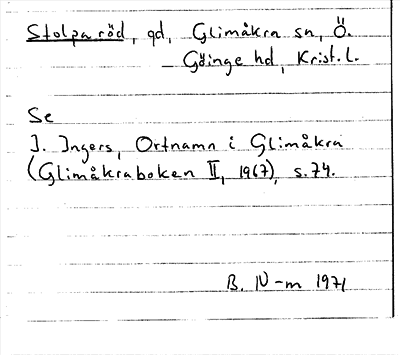 Stolparöd, gd, Glimåkra sn, Ö.
– Göinge hd, Krist. l.
Se
I. Ingers, Ortnamn i Glimåkra
(Glimåkraboken II, 1967), s. 74.
B. N-m 1971